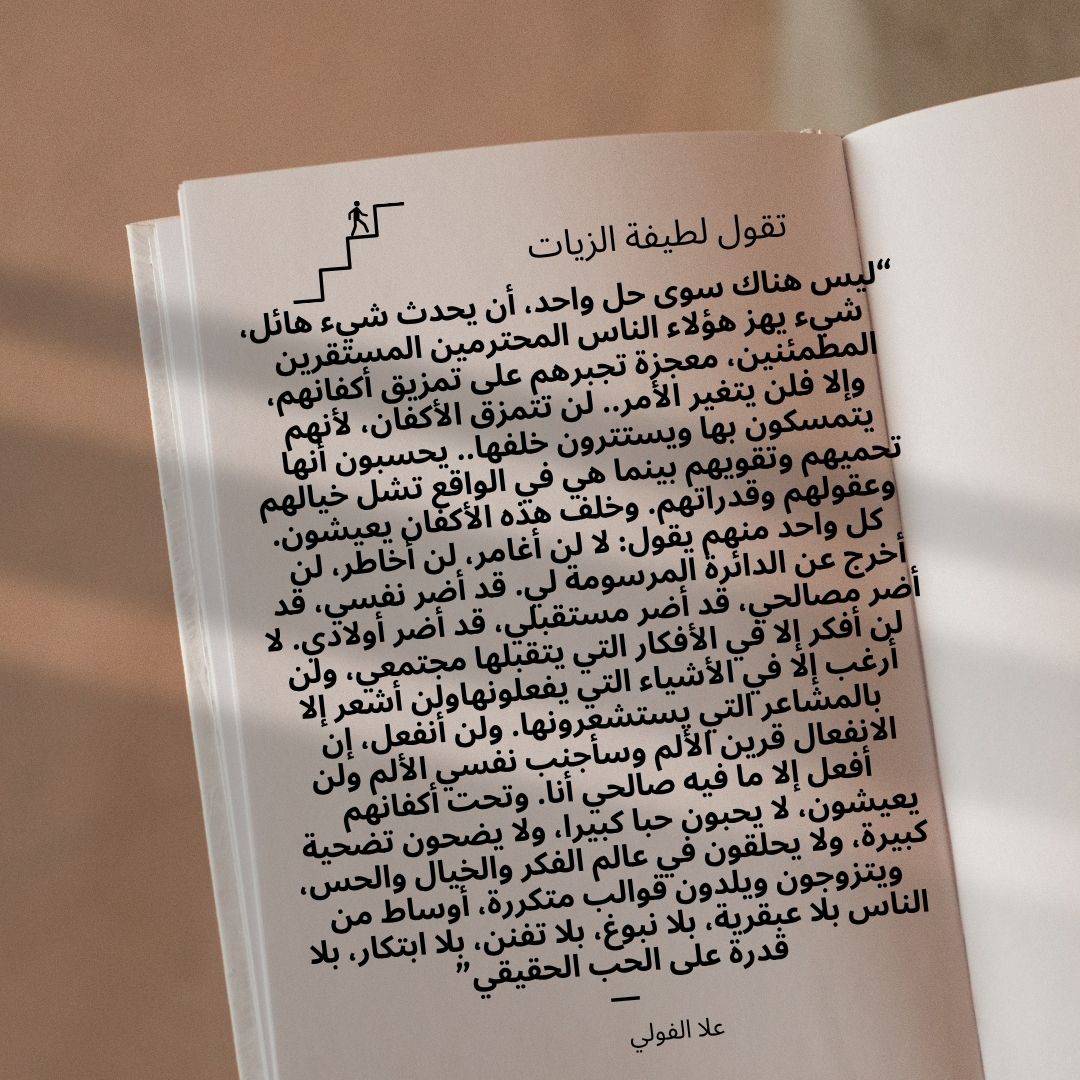 تقول لطيفة الزيات
“ليس هناك سوى حل واحد، أن يحدث شيء هائل،
شيء يهز هؤلاء الناس المحترمين المستقرين
المطمئنين، معجزة تجبرهم على تمزيق أكفانهم،
وإلا فلن يتغير الأمر.. لن تتمزق الأكفان، لأنهم
يتمسكون بها ويستترون خلفها.. يحسبون أنها
تحميهم وتقويهم بينما هي في الواقع تشل خيالهم
وعقولهم وقدراتهم. وخلف هذه الأكفان يعيشون.
كل واحد منهم يقول: لا لن أغامر، لن أخاطر، لن
أخرج عن الدائرة المرسومة لي. قد أضر نفسي، قد
أضر مصالحي، قد أضر مستقبلي، قد أضر أولادي. لا
لن أفكر إلا في الأفكار التي يتقبلها مجتمعي، ولن
أرغب إلا في الأشياء التي يفعلونهاولن أشعر إلا
بالمشاعر التي يستشعرونها. ولن أنفعل، إن
الانفعال قرين الألم وسأجنب نفسي الألم ولن
أفعل إلا ما فيه صالحي أنا. وتحت أكفانهم
يعيشون، لا يحبون حبا كبيرا، ولا يضحون تضحية
كبيرة، ولا يحلقون في عالم الفكر والخيال والحس،
ويتزوجون ويلدون قوالب متكررة، أوساط من
الناس بلا عبقرية، بلا نبوغ، بلا تفنن، بلا ابتكار، بلا
قدرة على الحب الحقيقي”
—
علا الفولي